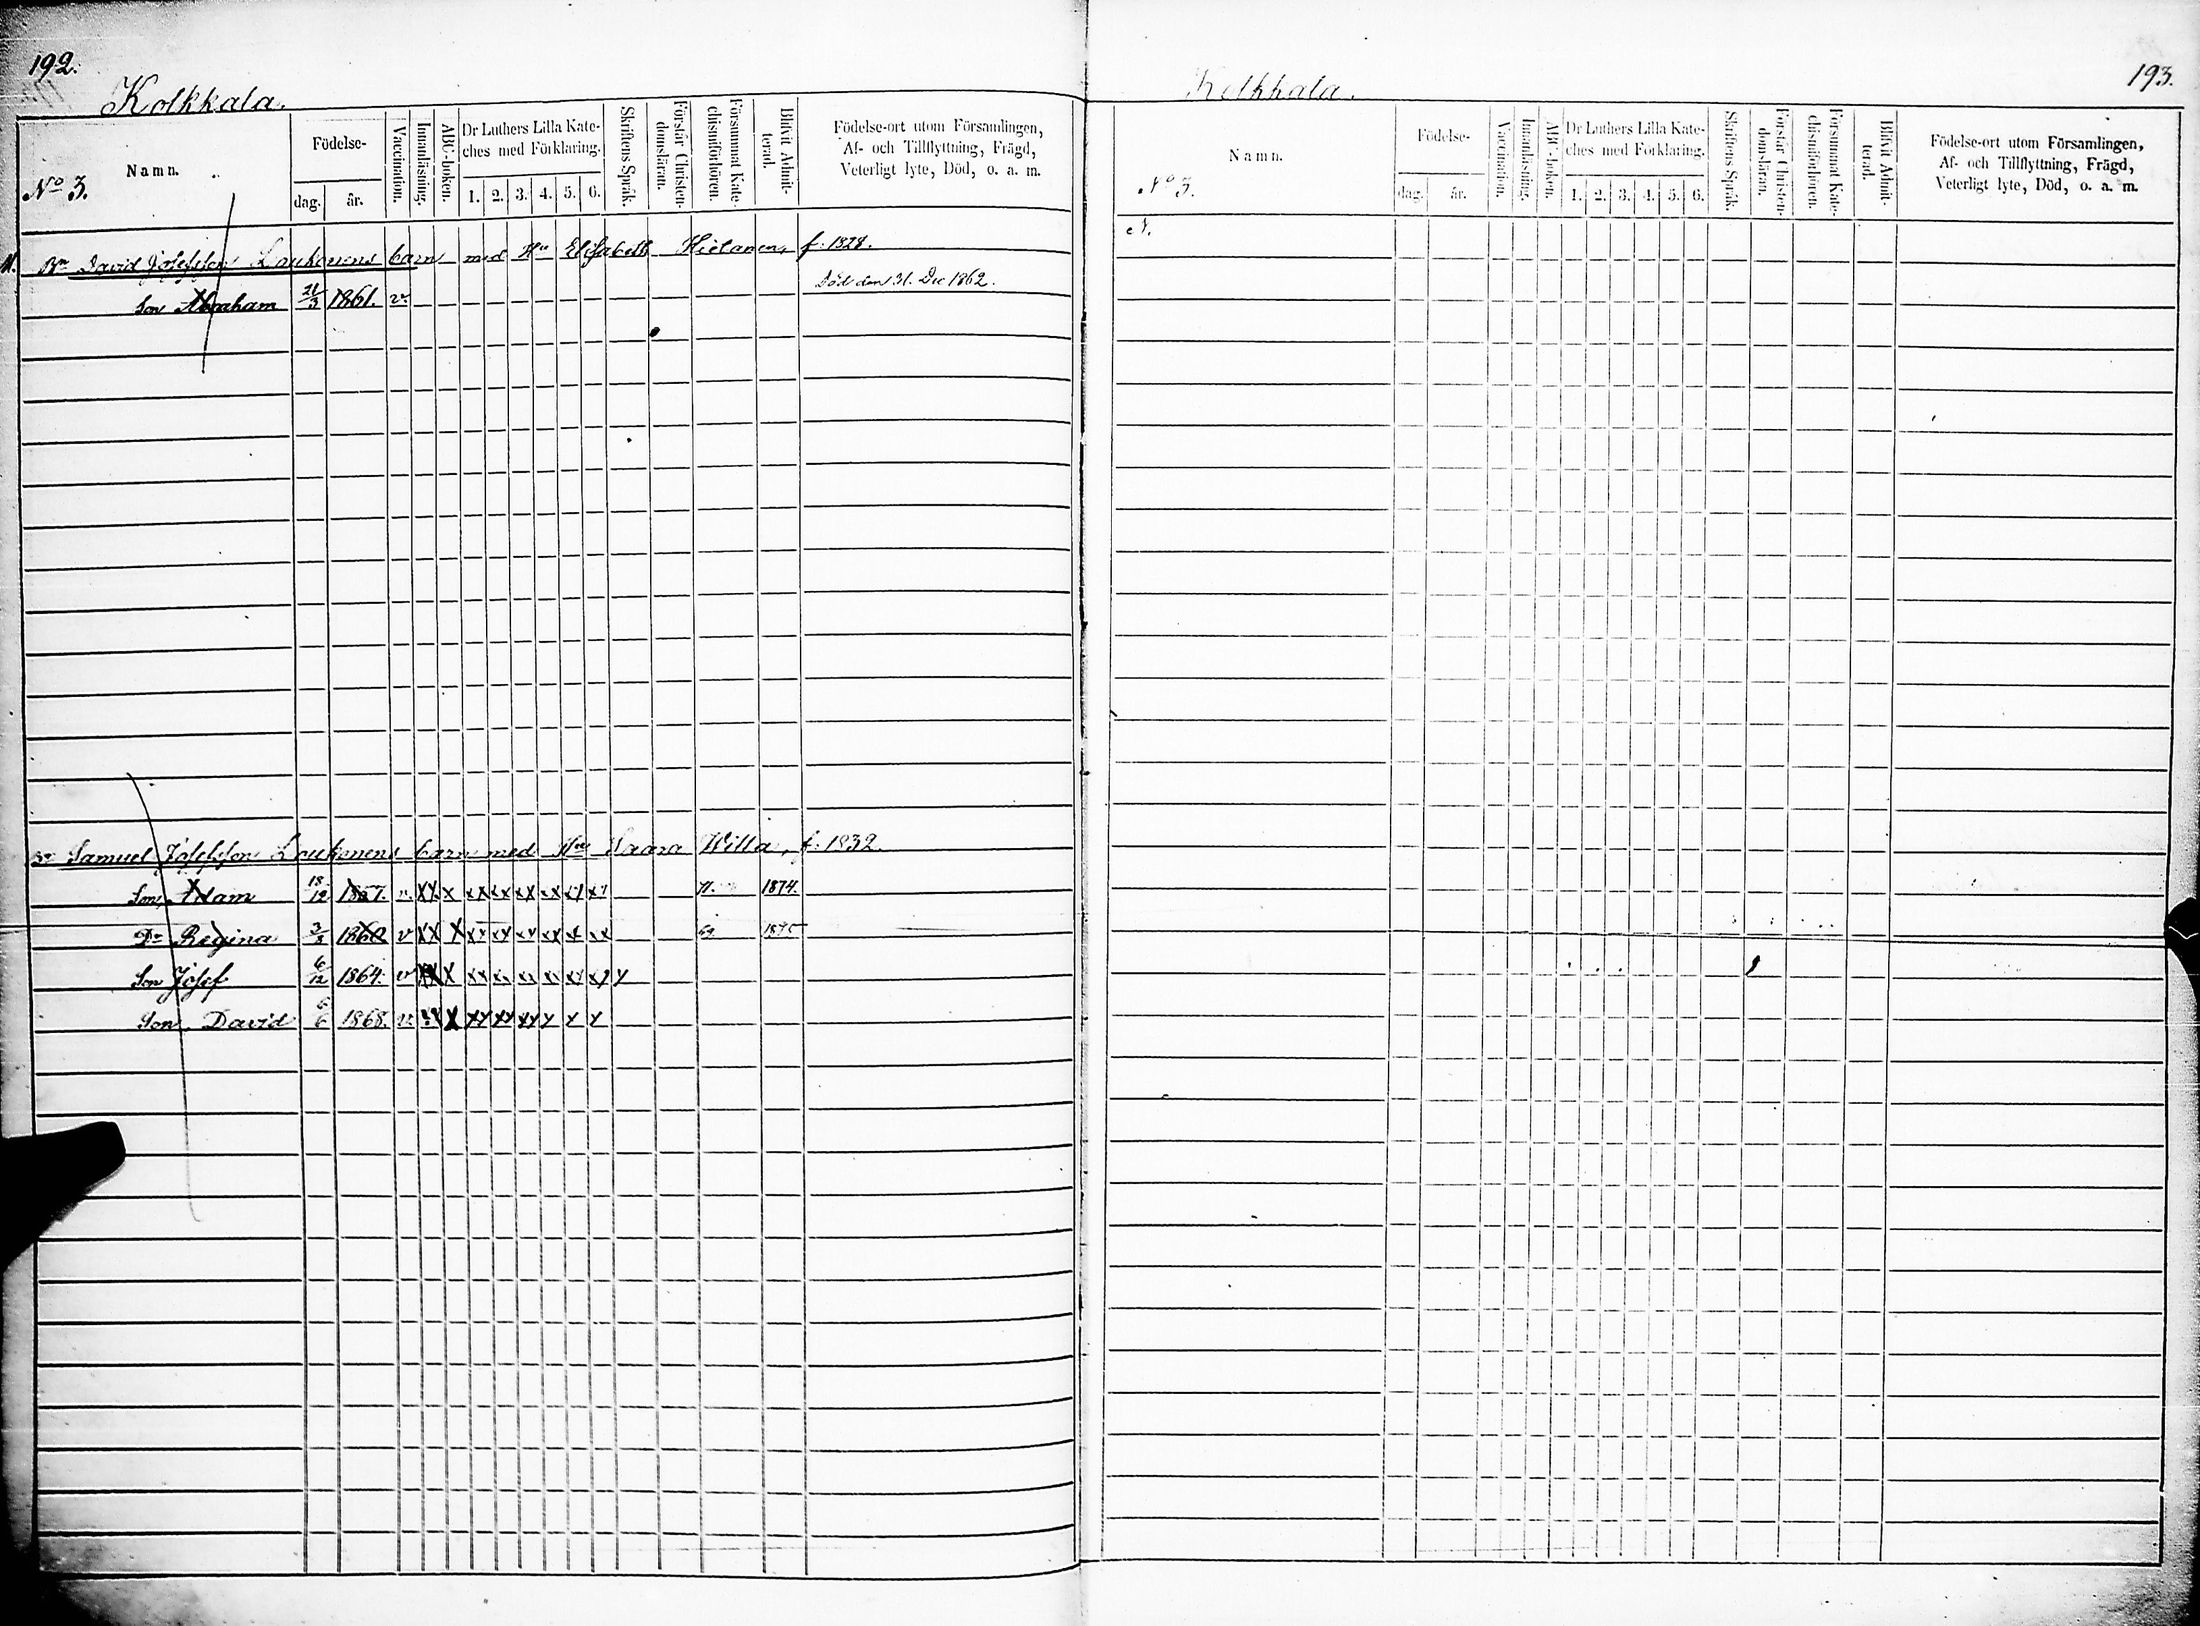 192.
Kolkkala.
Namn.
No 3.
Födelse-
dag. år.
Vaccination.
Innanläsning.
ABC-boken.
Dr Luthers Lilla Kate-
ches med Förklaring.
1. 2. 3. 4. 5. 6.
Skriftens Språk.
Förstår Christen-
domsläran.
Försummat Kate-
chismiförhören.
Blifvit Admit-
terad.
Födelse-ort utom Församlingen,
Af- och Tillflyttning, Frägd,
Veterligt lyte, Död, o. a. m.
Bn David Josefsson Laukonens barn med Hu Elisabeth Hietanen, f. 1828.
Son Abraham 21/3 1861. v. Död den 31. Dec 1862.
Br Samuel Josefsson Laukonens barn med Hu Saara Willa, f. 1832.
Son, Adam 18/12 1857. v. XX X XX XX XX XX XX XX 71. 1874.
Dr Regina 3/3 1860 v XX X XX XX XX XX X XX 69 1875
Son Josef 6/12 1864. v XX X XX XX XX XX XX XX X
Son, David 6/6 1868. v. XX X XX XX XX X X X
Kolkkala.
193.
Namn.
No 3.
Födelse-
dag. år.
Vaccination.
Innanläsning.
ABC-boken.
Dr Luthers Lilla Kate-
ches med Förklaring.
1. 2. 3. 4. 5. 6.
Skriftens Språk.
Förstår Christen-
domsläran.
Försummat Kate-
chismiförhören.
Blifvit Admit-
terad.
Födelse-ort utom Församlingen,
Af- och Tillflyttning, Frägd,
Veterligt lyte, Död, o. a. m.